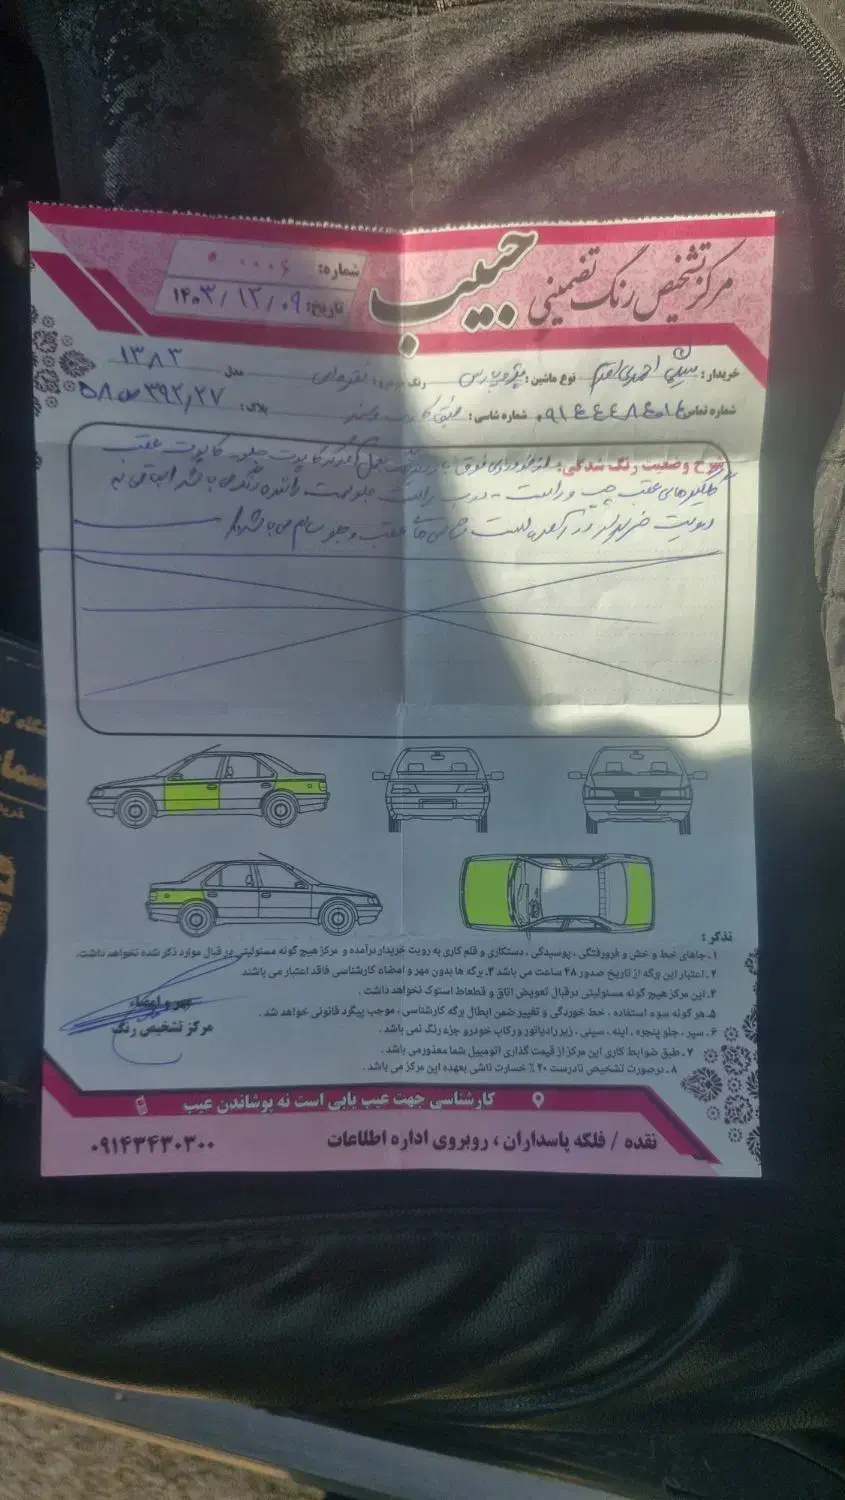 مرکز تشخیص رنگ تضمینی
حبیب
شماره: ۰۰۰۶
تاریخ: ۱۴۰۳/۱۲/۰۹
خریدار: نوع ماشین: پژو پارس رنگ خودرو: نقره‌ای مدل ۱۳۸۳
شماره تماس: شماره شاسی: طبق کارت و سند پلاک:
شرح وضعیت رنگ شدگی: از خودروی فوق کاپوت جلو، کاپوت عقب
گلگیرهای عقب چپ و راست - درب جلو سمت راننده رنگ می باشد الباقی به
رویت خریدار شاسی های عقب و جلو سالم می باشد
تذکر:
۱. جاهای خط و خش و فرورفتگی، پوسیدگی، دستکاری و قلم کاری به رویت خریدار درآمده و مرکز هیچ گونه مسئولیتی در قبال موارد ذکر شده نخواهد داشت.
۲. اعتبار این برگه از تاریخ صدور ۴۸ ساعت می باشد ۳. برگه ها بدون مهر و امضاء کارشناسی فاقد اعتبار می باشند
۴. این مرکز هیچ گونه مسئولیتی درقبال تعویض اتاق و قطعاط استوک نخواهد داشت.
۵. هر گونه سوء استفاده، خط خوردگی و تغییر ضمن ابطال برگه کارشناسی، موجب پیگرد قانونی خواهد شد.
۶. سپر، جلو پنجره، اینه، سینی، زیر رادیاتور ورکاب خودرو جزء رنگ نمی باشد.
۷. طبق ضوابط کاری این مرکز از قیمت گذاری اتومبیل شما معذور می باشد.
۸. درصورت تشخیص نادرست ۲۰٪ خسارت ناشی بعهده این مرکز می باشد.
مهر و امضاء
مرکز تشخیص رنگ
کارشناسی جهت عیب یابی است نه پوشاندن عیب
نقده / فلکه پاسداران، روبروی اداره اطلاعات
۰۹۱۴۳۴۳۰۳۰۰